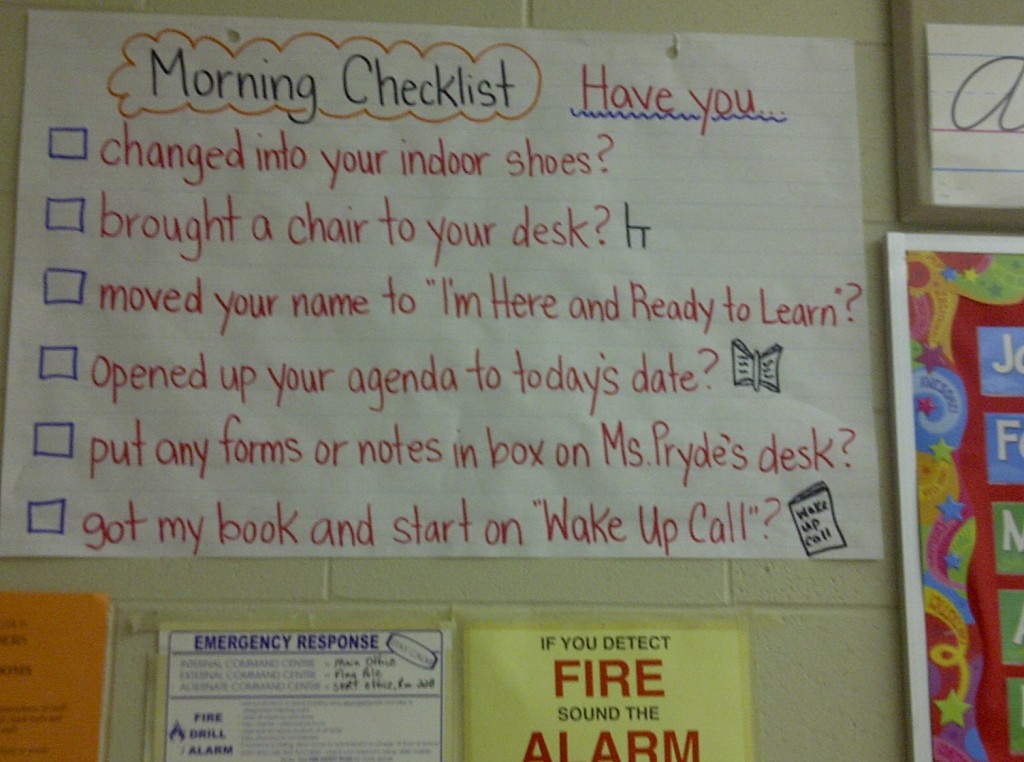 Morning Checklist Have you...
changed into your indoor shoes?
brought a chair to your desk?
moved your name to "I'm Here and Ready to Learn"?
opened up your agenda to today's date?
put any forms or notes in box on Ms. Pryde's desk?
got my book and start on "Wake Up Call"?
Wake
up
Call
a
EMERGENCY RESPONSE
STAY CALM
INTERNAL COMMAND CENTRE - Main Office
EXTERNAL COMMAND CENTRE - Flag Pole
ALTERNATE COMMAND CENTRE
FIRE
DRILL
/ ALARM
IF YOU DETECT
FIRE
SOUND THE
ALARM